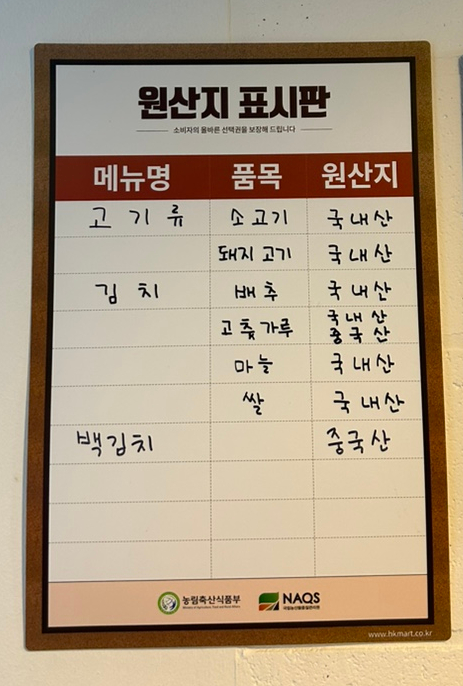 원산지 표시판
소비자의 올바른 선택권을 보장해 드립니다
메뉴명 품목 원산지
고기류 소고기 국내산
돼지고기 국내산
김치 배추 국내산
고춧가루 국내산
중국산
마늘 국내산
쌀 국내산
백김치 중국산
농림축산식품부 NAQS
Ministry of Agriculture, Food and Rural Affairs 국립농산물품질관리원
www.hkmart.co.kr